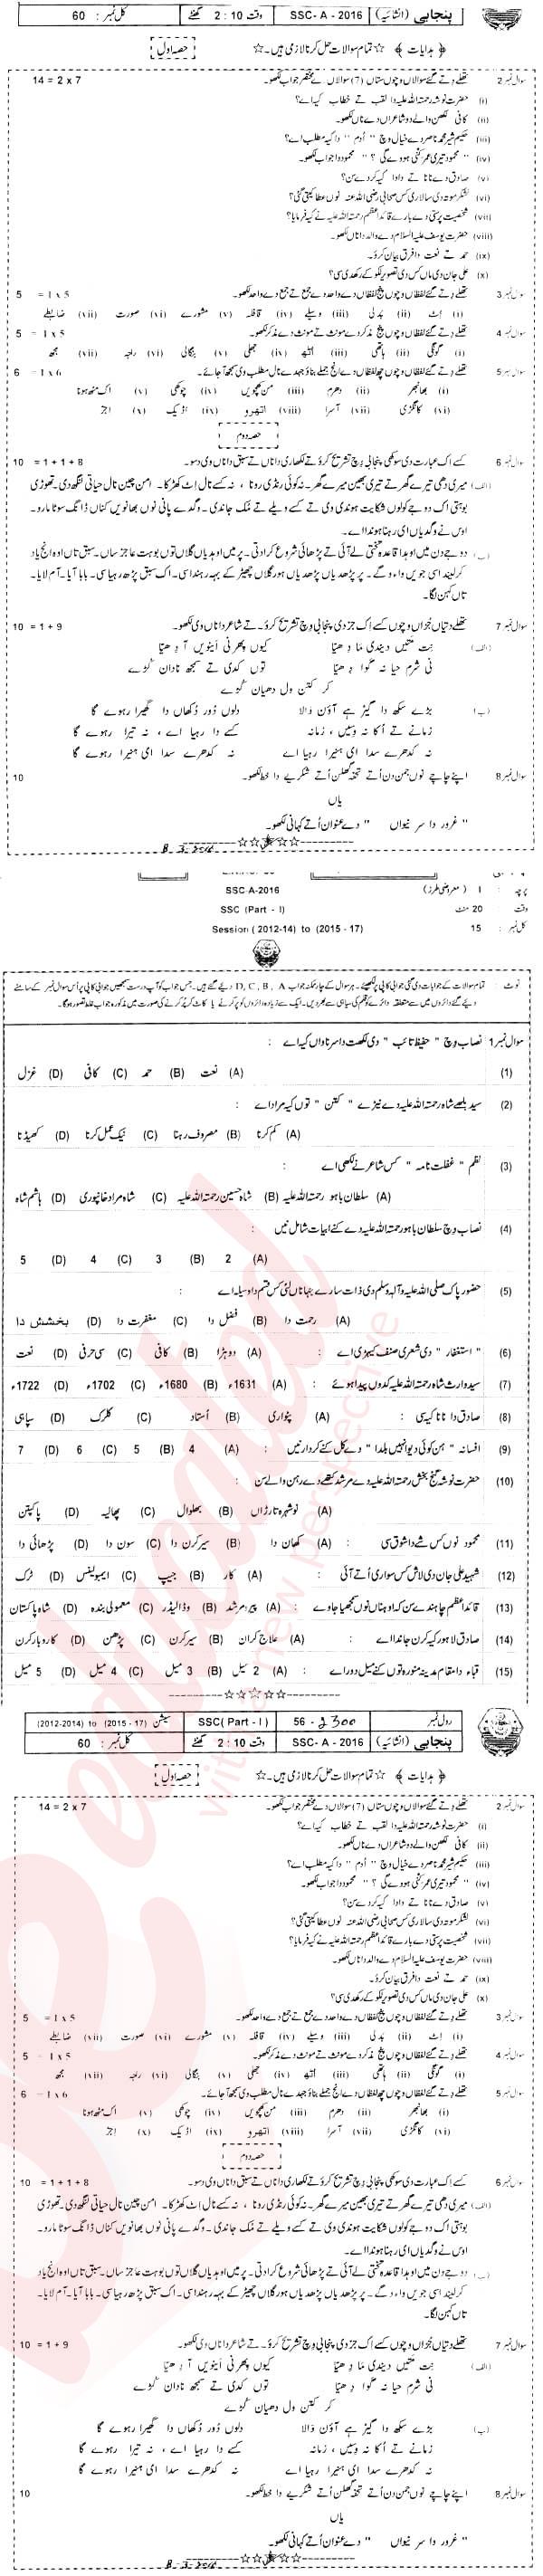 پنجابی (انشائیہ) SSC- A - 2016 وقت 2 : 10 گھنٹے کل نمبر: 60
﴿ ہدایات ﴾ ☆ تمام سوالات حل کرنا لازمی ہیں۔☆ حصہ اول
سوال نمبر 2 تھلے دتے گئے سوالاں وچوں ستاں (7) سوالاں دے مختصر جواب لکھو۔ 14 = 2 x 7
(i) حضرت نوشہ رحمتہ اللہ علیہ دا لقب تے خطاب کیہ اے؟
(ii) کافی لکھن والے دو شاعراں دے ناں لکھو۔
(iii) حکیم شیر محمد ناصر دے خیال وچ " اُدّم " دا کیہ مطلب اے؟
(iv) " محمود تیری عمر کنی ہووے گی ؟ " محمود دا جواب لکھو۔
(v) صادق دے نانا تے دادا کیہ کردے سن؟
(vi) لشکر موتہ دی سالاری کس صحابی رضی اللہ عنہ نوں عطا کیتی گئی؟
(vii) شخصیت پرستی دے بارے قائد اعظم رحمتہ اللہ علیہ نے کیہ فرمایا؟
(viii) حضرت یوسف علیہ السلام دے والد دا ناں لکھو۔
(ix) حمد تے نعت دا فرق بیان کرو۔
(x) علی جان دی ماں کس دی تصویر لکو کے رکھدی سی؟
سوال نمبر 3 تھلے دتے گئے لفظاں وچوں پنج لفظاں دے واحد دے جمع تے جمع دے واحد لکھو۔ 5 = 1 x 5
(i) اِٹ (ii) بدلی (iii) ویلے (iv) قافلہ (v) مشورے (vi) صورت (vii) ضابطے
سوال نمبر 4 تھلے دتے گئے لفظاں وچوں پنج مذکر دے مونث تے مونث دے مذکر لکھو۔ 5 = 1 x 5
(i) گونگی (ii) ہاتھی (iii) اُٹھ (iv) جھلی (v) بنگالی (vi) راجہ (vii) مجھ
سوال نمبر 5 تھلے دتے گئے لفظاں وچوں چھ لفظاں دے انج جملے بناؤ جیہدے نال مطلب وی سمجھ آ جائے۔ 6 = 1 x 6
(i) بھانبھر (ii) دھرم (iii) من کھچویں (iv) چوکھی (v) اک مٹھ ہونا
(vi) کانگڑی (vii) آسرا (viii) اتھرو (ix) اڈیک (x) اجڑ
حصہ دوم
سوال نمبر 6 کسے اِک عبارت دی سوکھی پنجابی وچ تشریح کرو تے لکھاری دا ناں تے سبق دا ناں وی دسو۔ 10 = 1 + 1 + 8
(الف) میری دھی تیرے گھر تے تیری بھین میرے گھر۔ نہ کوئی رنڈی رونا ، نہ کسے نال اِٹ کھڑکا۔ امن چین نال حیاتی لنگھدی۔ تھوڑی
بوہتی اک دوجے کولوں شکایت ہوندی وی تے کسے ویلے تے مُک جاندی۔ وگدے پانی نوں بھانویں کناں ڈانگ سوٹا مارو۔
اوس نے وگدیاں ای رہنا ہوندا اے۔
(ب) دوجے دن میں اوہدا قاعدہ تختی لے آئی تے پڑھائی شروع کرا دتی۔ پر میں اوہدیاں گلاں توں بوہت عاجز ساں۔ سبق تاں اوہ انج یاد
کر لیندا سی جویں واء وگے۔ پر پڑھدیاں پڑھدیاں ہور گلاں چھیڑ کے بہہ رہندا سی۔ اک سبق پڑھ رہیا سی۔ بابا آیا۔ آم لایا۔
تاں کہن لگا۔
سوال نمبر 7 تھلے دتیاں جُزاں وچوں کسے اِک جز دی پنجابی وچ تشریح کرو۔ تے شاعر دا ناں وی لکھو۔ 10 = 1 + 9
(الف) نِت متیں دیندی ماں دھیّا کیوں پھرنی ایں اینویں آ دھیّا
نی شرم حیا نہ گوا دھیّا توں کدی تے سمجھ نادان کڑے
کر کتن ول دھیان کڑے
(ب) بڑے سکھ دا گیڑ ہے آؤن والا دلوں دُور دُکھاں دا گھیرا رہوے گا
زمانے تے اُکا نہ وِسِیں ، زمانہ کسے دا رہیا اے ، نہ تیرا رہوے گا
نہ کدھرے سدا ای ہنیرا رہیا اے نہ کدھرے سدا ای ہنیرا رہوے گا
سوال نمبر 8 اپنے چاچے نوں جمن دن اُتے تحفہ گھلن اُتے شکریے دا خط لکھو۔ 10
یاں
" غرور دا سر نیواں " دے عنوان اُتے کہانی لکھو۔
پرچہ : 1 (معروضی طرز) SSC-A-2016
وقت : 20 منٹ SSC (Part - I)
کل نمبر : 15 Session (2012-14) to (2015 - 17)
نوٹ : تمام سوالات کے جوابات دی گئی جوابی کاپی پر لکھیئے۔ ہر سوال کے چار ممکنہ جواب D, C, B, A دیے گئے ہیں۔ جس جواب کو آپ درست سمجھیں جوابی کاپی پر اُس سوال نمبر کے سامنے
دیے گئے دائروں میں سے متعلقہ دائرے کو قلم کی سیاہی سے بھر دیں۔ ایک سے زیادہ دائروں کو پُر کرنے یا کاٹ کر پُر کرنے کی صورت میں مذکورہ جواب غلط تصور ہو گا۔
سوال نمبر 1 نصاب وچ " حفیظ تائب " دی لکھت دا سرناواں کیہ اے :
(1) (A) نعت (B) حمد (C) کافی (D) غزل
(2) سید بلھے شاہ رحمتہ اللہ علیہ دے نیڑے " کتن " توں کیہ مراد اے :
(A) کم کرنا (B) مصروف رہنا (C) نیک عمل کرنا (D) کھیڈنا
(3) نظم " غفلت نامہ " کس شاعر نے لکھی اے :
(A) سلطان باہو رحمتہ اللہ علیہ (B) شاہ حسین رحمتہ اللہ علیہ (C) شاہ مراد خانپوری (D) ہاشم شاہ
(4) نصاب وچ سلطان باہو رحمتہ اللہ علیہ دے کنے ابیات شامل نیں :
(A) 2 (B) 3 (C) 4 (D) 5
(5) حضور پاک صلی اللہ علیہ و آلہ وسلم دی ذات سارے جہاناں لئی کس قسم دا وسیلہ اے :
(A) رحمت دا (B) فضل دا (C) مغفرت دا (D) بخشش دا
(6) " استغفار " دی شعری صنف کیہڑی اے : (A) دوہڑا (B) کافی (C) سی حرفی (D) نعت
(7) سید وارث شاہ رحمتہ اللہ علیہ کدوں پیدا ہوئے : (A) 1631ء (B) 1680ء (C) 1702ء (D) 1722ء
(8) صادق دا نانا کیہ سی : (A) پٹواری (B) اُستاد (C) کلرک (D) سپاہی
(9) افسانہ " ہن کوئی دیوا نہیں بلدا " دے کل کنے کردار نیں : (A) 4 (B) 5 (C) 6 (D) 7
(10) حضرت نوشہ گنج بخش رحمتہ اللہ علیہ دے مرشد کتھے دے رہن والے سن :
(A) نوشہرہ تارڑاں (B) بھلوال (C) پھالیہ (D) پاکپتن
(11) محمود نوں کس شے دا شوق سی : (A) کھان دا (B) سیر کرن دا (C) سون دا (D) پڑھائی دا
(12) شہید علی جان دی لاش کس سواری اُتے آئی : (A) کار (B) جیپ (C) ایمبولینس (D) ٹرک
(13) قائد اعظم چاہندے سن کہ اوہناں نوں سمجھیا جاوے : (A) پیر مرشد (B) وڈا لیڈر (C) معمولی بندہ (D) شاہ پاکستان
(14) صادق لاہور کیہ کرن جاندا اے : (A) علاج کران (B) سیر کرن (C) پڑھن (D) کاروبار کرن
(15) قباء دا مقام مدینہ منورہ توں کنے میل دور اے : (A) 2 میل (B) 3 میل (C) 4 میل (D) 5 میل
رول نمبر 56 - 2300 SSC( Part - I ) سیشن (2015 - 17) to (2012-2014)
پنجابی (انشائیہ) SSC- A - 2016 وقت 2 : 10 گھنٹے کل نمبر : 60
﴿ ہدایات ﴾ ☆ تمام سوالات حل کرنا لازمی ہیں۔☆ حصہ اول
سوال نمبر 2 تھلے دتے گئے سوالاں وچوں ستاں (7) سوالاں دے مختصر جواب لکھو۔ 14 = 2 x 7
(i) حضرت نوشہ رحمتہ اللہ علیہ دا لقب تے خطاب کیہ اے؟
(ii) کافی لکھن والے دو شاعراں دے ناں لکھو۔
(iii) حکیم شیر محمد ناصر دے خیال وچ " اُدّم " دا کیہ مطلب اے؟
(iv) " محمود تیری عمر کنی ہووے گی ؟ " محمود دا جواب لکھو۔
(v) صادق دے نانا تے دادا کیہ کردے سن؟
(vi) لشکر موتہ دی سالاری کس صحابی رضی اللہ عنہ نوں عطا کیتی گئی؟
(vii) شخصیت پرستی دے بارے قائد اعظم رحمتہ اللہ علیہ نے کیہ فرمایا؟
(viii) حضرت یوسف علیہ السلام دے والد دا ناں لکھو۔
(ix) حمد تے نعت دا فرق بیان کرو۔
(x) علی جان دی ماں کس دی تصویر لکو کے رکھدی سی؟
سوال نمبر 3 تھلے دتے گئے لفظاں وچوں پنج لفظاں دے واحد دے جمع تے جمع دے واحد لکھو۔ 5 = 1 x 5
(i) اِٹ (ii) بدلی (iii) ویلے (iv) قافلہ (v) مشورے (vi) صورت (vii) ضابطے
سوال نمبر 4 تھلے دتے گئے لفظاں وچوں پنج مذکر دے مونث تے مونث دے مذکر لکھو۔ 5 - 1 x 5
(i) گونگی (ii) ہاتھی (iii) اُٹھ (iv) جھلی (v) بنگالی (vi) راجہ (vii) مجھ
سوال نمبر 5 تھلے دتے گئے لفظاں وچوں چھ لفظاں دے انج جملے بناؤ جیہدے نال مطلب وی سمجھ آ جائے۔ 6 - 1 x 6
(i) بھانبھر (ii) دھرم (iii) من کھچویں (iv) چوکھی (v) اک مٹھ ہونا
(vi) کانگڑی (vii) آسرا (viii) اتھرو (ix) اڈیک (x) اجڑ
حصہ دوم
سوال نمبر 6 کسے اِک عبارت دی سوکھی پنجابی وچ تشریح کرو تے لکھاری دا ناں تے سبق دا ناں وی دسو۔ 10 = 1 + 1 + 8
(الف) میری دھی تیرے گھر تے تیری بھین میرے گھر۔ نہ کوئی رنڈی رونا ، نہ کسے نال اِٹ کھڑکا۔ امن چین نال حیاتی لنگھدی۔ تھوڑی
بوہتی اک دوجے کولوں شکایت ہوندی وی تے کسے ویلے تے مُک جاندی۔ وگدے پانی نوں بھانویں کناں ڈانگ سوٹا مارو۔
اوس نے وگدیاں ای رہنا ہوندا اے۔
(ب) دوجے دن میں اوہدا قاعدہ تختی لے آئی تے پڑھائی شروع کرا دتی۔ پر میں اوہدیاں گلاں توں بوہت عاجز ساں۔ سبق تاں اوہ انج یاد
کر لیندا سی جویں واء وگے۔ پر پڑھدیاں پڑھدیاں ہور گلاں چھیڑ کے بہہ رہندا سی۔ اک سبق پڑھ رہیا سی۔ بابا آیا۔ آم لایا۔
تاں کہن لگا۔
سوال نمبر 7 تھلے دتیاں جُزاں وچوں کسے اِک جز دی پنجابی وچ تشریح کرو۔ تے شاعر دا ناں وی لکھو۔ 10 = 1 + 9
(الف) نِت متیں دیندی ماں دھیّا کیوں پھرنی ایں اینویں آ دھیّا
نی شرم حیا نہ گوا دھیّا توں کدی تے سمجھ نادان کڑے
کر کتن ول دھیان کڑے
(ب) بڑے سکھ دا گیڑ ہے آؤن والا دلوں دُور دُکھاں دا گھیرا رہوے گا
زمانے تے اُکا نہ وِسِیں ، زمانہ کسے دا رہیا اے ، نہ تیرا رہوے گا
نہ کدھرے سدا ای ہنیرا رہیا اے نہ کدھرے سدا ای ہنیرا رہوے گا
سوال نمبر 8 اپنے چاچے نوں جمن دن اُتے تحفہ گھلن اُتے شکریے دا خط لکھو۔ 10
یاں
" غرور دا سر نیواں " دے عنوان اُتے کہانی لکھو۔